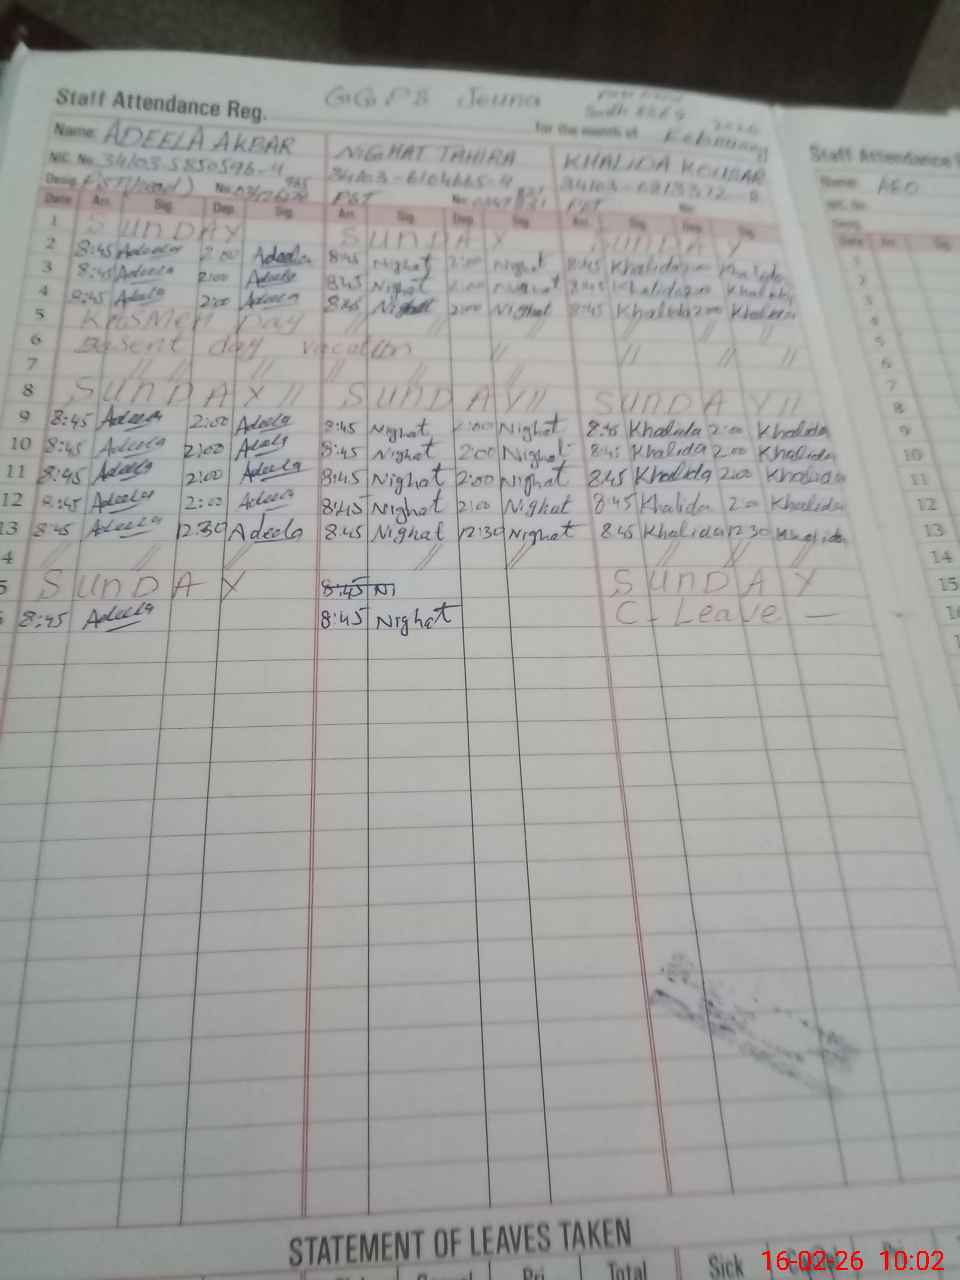 Staff Attendance Reg. GGPS Jeuna
for the month of February 2026
Name: ADEELA AKBAR NIGHAT TAHIRA KHALIDA KOUSAR
NIC. No. 34103-5850596-4 34103-6104665-4
Desig. PST No. PST No. PST No.
Date Arr. Sig. Dep. Sig. Arr. Sig. Dep. Sig. Arr. Sig. Dep. Sig.
1 SUNDAY SUNDAY SUNDAY
2 8:45 Adeela 2:00 Adeela 8:45 Nighat 2:00 Nighat 8:45 Khalida 2:00 Khalida
3 8:45 Adeela 2:00 Adeela 8:45 Nighat 2:00 Nighat 8:45 Khalida 2:00 Khalida
4 8:45 Adeela 2:00 Adeela 8:45 Nighat 2:00 Nighat 8:45 Khalida 2:00 Khalida
5 Kashmir Day // // // // //
6 day vacation // // // //
7 // // // // // //
8 SUNDAY // SUNDAY // SUNDAY //
9 8:45 Adeela 2:00 Adeela 8:45 Nighat 2:00 Nighat 8:45 Khalida 2:00 Khalida
10 8:45 Adeela 2:00 Adeela 8:45 Nighat 2:00 Nighat 8:45 Khalida 2:00 Khalida
11 8:45 Adeela 2:00 Adeela 8:45 Nighat 2:00 Nighat 8:45 Khalida 2:00 Khalida
12 8:45 Adeela 2:00 Adeela 8:45 Nighat 2:00 Nighat 8:45 Khalida 2:00 Khalida
13 8:45 Adeela 12:30 Adeela 8:45 Nighat 12:30 Nighat 8:45 Khalida 12:30 Khalida
4 // // // // // // // // //
5 SUNDAY 8:45 Ni SUNDAY
8:45 Adeela 8:45 Nighat C-Leave —
STATEMENT OF LEAVES TAKEN
Total Sick
Staff Attendance
Name: AEO
Date Arr. Sig.
1
2
3
4
5
6
7
8
9
10
11
12
13
14
15
16
16-02-26 10:02